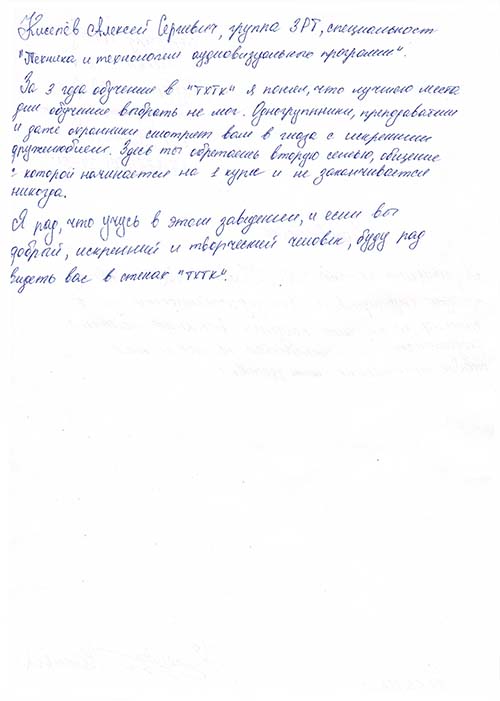 Киселёв Алексей Сергевич, группа 3РТ, специальност
"Техника и технологии аудиовизуального программ".
За 3 года обучения в "ТХТК" я понял, что лучшего места
для обучение выбрать не мог. Одногрупнники, преподаватели
и даже охранники смотрят вам в глаза с искренним
дружелюбием. Здесь ты обретаешь вторую семью, общение
с которой начинается на 1 курсе и не заканчивается
никогда.
Я рад, что учусь в этом заведении, и если вы
добрай, искренний и творческий человек, буду рад
видеть вас в стенах "ТХТК".